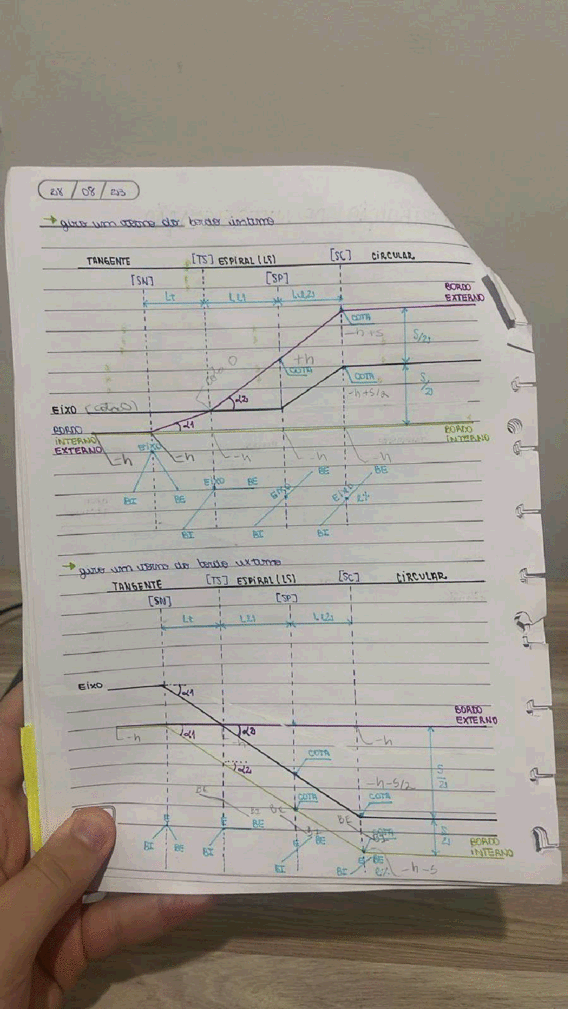 28 / 08 / 23
→ giro em torno do bordo interno
TANGENTE [TS] ESPIRAL (LS) [SC] CIRCULAR
[SN] [SP]
Lt
BORDO
EXTERNO
COTA
-h+S
S/2
+h
COTA
COTA
-h+S/2
S/2
α2
EIXO (cota 0)
α1
BORDO
INTERNO
EXTERNO
BORDO
INTERNO
-h -h -h -h -h
EIXO
BI BE
EIXO BE
BI
BE
EIXO
BI
BE
EIXO
BI
→ giro em torno do bordo externo
TANGENTE [TS] ESPIRAL (LS) [SC] CIRCULAR
[SN] [SP]
Lt
EIXO α1
BORDO
EXTERNO
-h α1 α2 -h
α2
COTA
-h-S/2
S/2
COTA
BE
E
BI BE
BE
BI
E
BI
BORDO
INTERNO
E BE
BI
-h-S